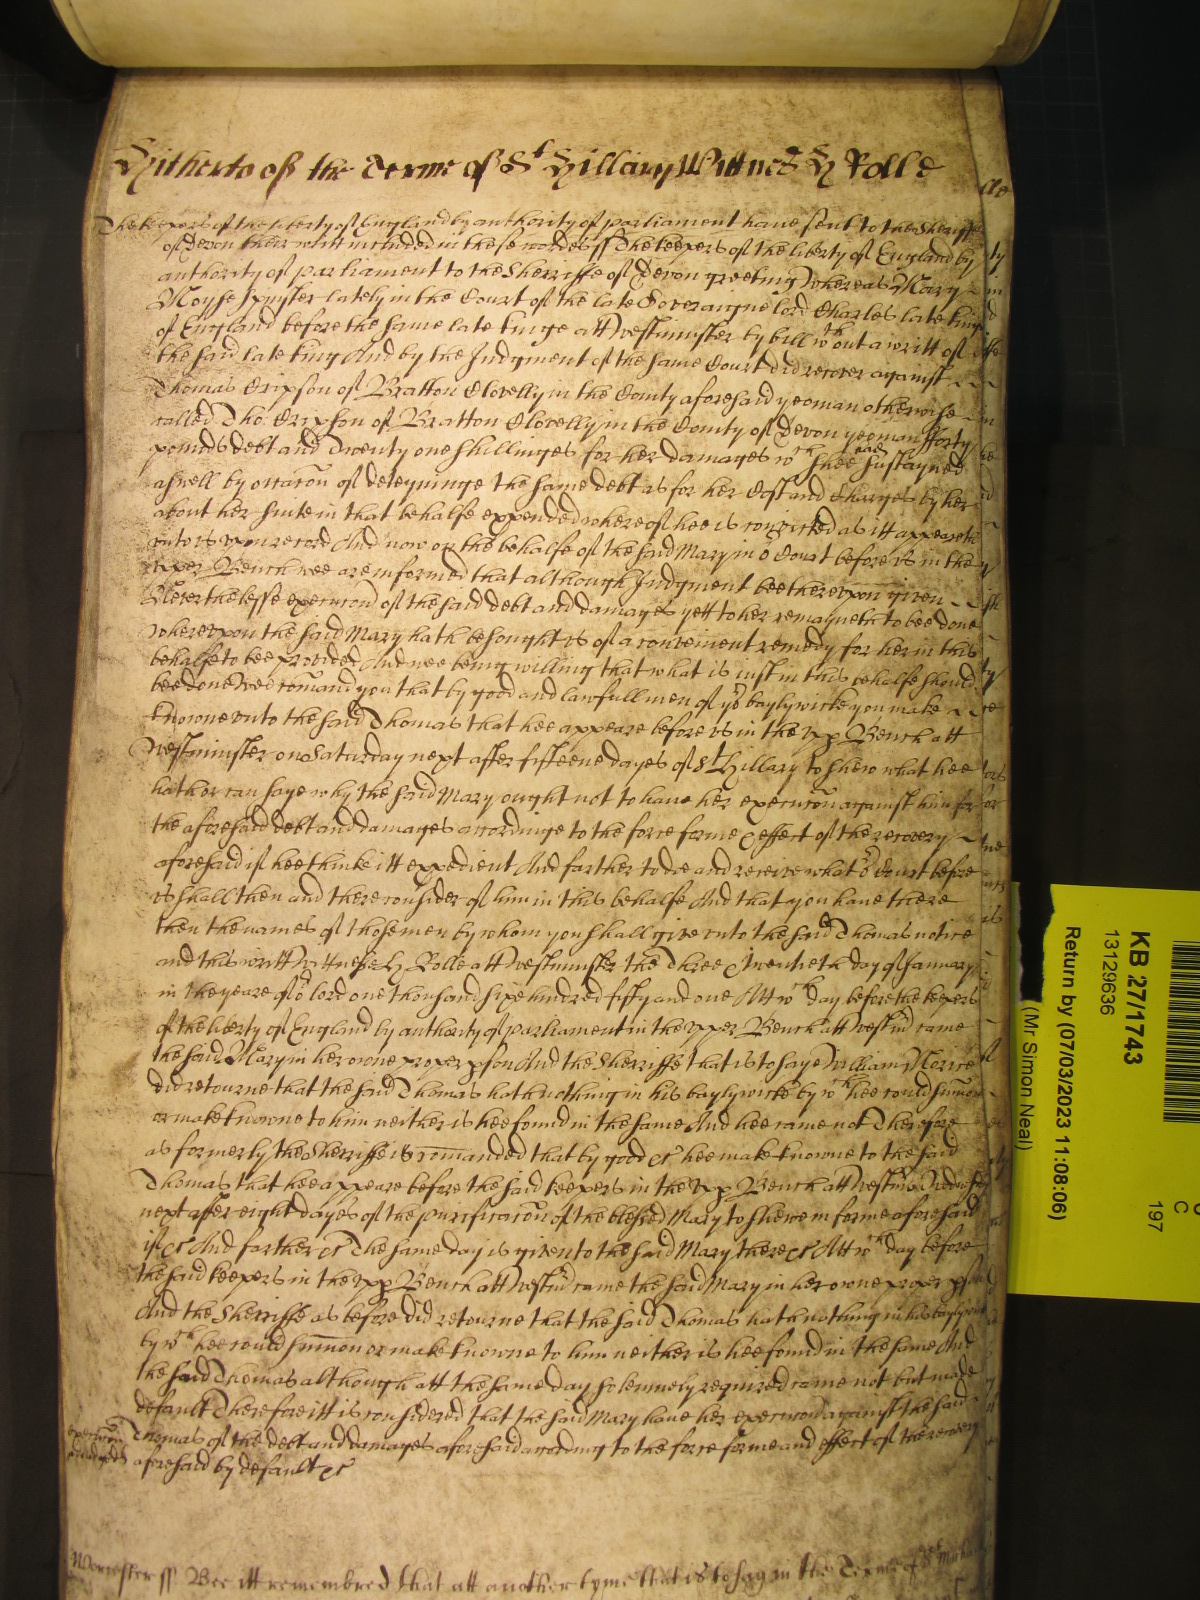 Hitherto of the Terme of St Hillary Wittnes H Rolle
The keepers of the liberty of England by authority of parliament have sent to the Sheriffe
of Devon their writt included in these wordes ss The keepers of the liberty of England by
authority of parliament to the Sherriffe of Devon greeting Whereas Mary
Moyse spinster lately in the Court of the late Soveraigne lord Charles late kinge
of England before the same late kinge att Westminster by bill wth out a writt of
the said late king And by the Judgment of the same Court did recover against
Thomas Cripson of Bratton Clovelly in the County aforesaid yeoman otherwise
called Tho: Cripson of Bratton Clovelly in the County of Devon yeoman fforty
pounds debt and Twenty one shillinges for her damages wch shee had sustayned
aswell by occacōn of deteyninge the same debt as for her Cost and Charges by her
about her suite in that behalfe expended whereof hee is convicted as itt appeareth
unto us upon record And now on the behalfe of the said Mary in or Court before us in the
upper Bench wee are informed that although Judgment bee thereupon given
Neverthelesse execucōn of the said debt and damages yett to her remayneth to bee done
whereupon the said Mary hath besought us of a convenient remedy for her in this
behalfe to bee provided And wee being willing that what is just in this behalfe should
bee done Wee comand you that by good and lawfull men of yor baylywicke you make
knowne unto the said Thomas that hee appeare before us in the upp Bench att
Westminster on Saturday next after fifteene dayes of St Hillary to shew what hee
hath or can saye why the said Mary ought not to have her execucōn against him for
the aforesaid debt and damages accordinge to the force forme & effect of the recovery
aforesaid if hee thinke itt expedient And farther to doe and receive what or Court before
us shall then and there consider of him in this behalfe And that you have there
then the names of those men by whom you shall give unto the said Thomas notice
and this writt Wittnesse H Rolle att Westminster the Three & twentieth day of January
in the yeare of or lord one thousand sixe hundred fifty and one Att wch day before the keepers
of the liberty of England by authority of parliament in the upper Bench att Westm̄ came
the said Mary in her owne proper pson And the Sherriffe that is to saye William Morice
did retourne that the said Thomas hath nothing in his baylywicke by wch hee could sum̄on
or make knowne to him neither is hee found in the same And hee came not Therefore
as formerly the Sherriffe is comanded that by good &c hee make knowne to the said
Thomas that hee appeare before the said keepers in the upp Bench att Westm̄
next after eight dayes of the purificacōn of the blessed Mary to shewe in forme aforesaid
if &c And farther &c The same day is given to the said Mary there &c Att wch day before
the said keepers in the upp Bench att Westm̄ came the said Mary in her owne proper pson
And the Sherriffe as before did retourne that the said Thomas hath nothing in his baylywicke
by wch hee could sum̄on or make knowne to him neither is hee found in the same And
the said Thomas although att the same day solemnely required came not but made
default Therefore itt is considered that the said Mary have her execucōn against the said
Thomas of the debt and damages aforesaid according to the force forme and effect of the recovery
aforesaid by default &c
execucōn
Worcester ss Bee itt remembred that att another tyme that is to say in the Terme of St
KB 27/1743
13129636
Return by (07/03/2023 11:08:06)
(Mr Simon Neal)
C
197